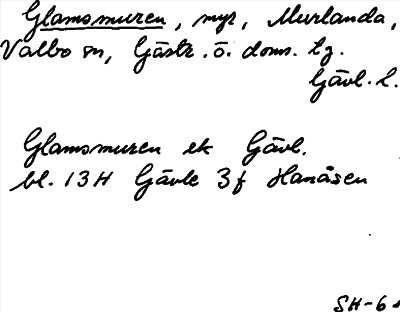 Glamsmuren, myr, Murlanda,
Valbo sn, Gästr. ö. doms. tg.
Gävl. l.
Glamsmuren ek Gävl.
bl. 13H Gävle 3f Hanåsen
SH-6